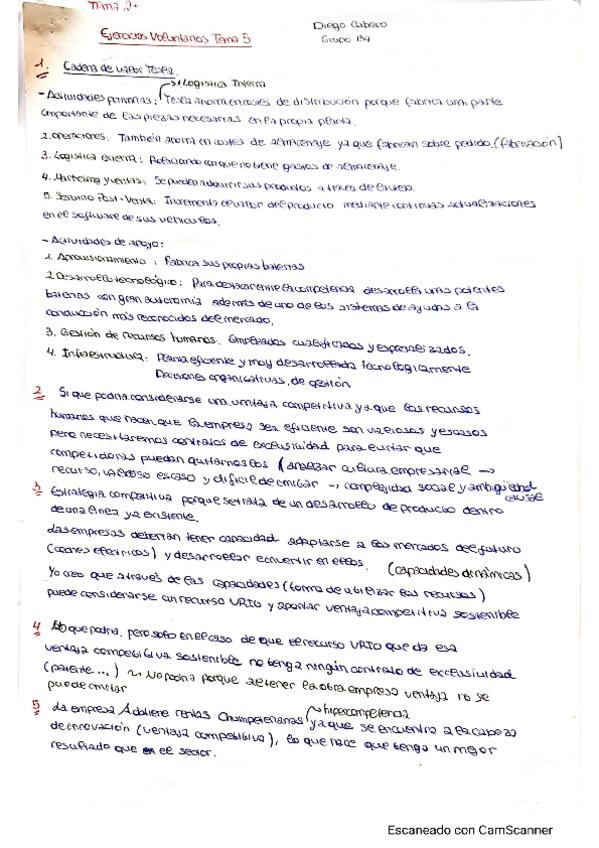 Tema 2
Diego Cubero
Ejercicios Voluntarios Tema 5
Grupo
1. Cadena de valor Tesla.
1. Logística Interna
- Actividades primarias: Tesla ahorra en costes de distribución porque fabrica una parte
importante de las piezas necesarias en la propia planta.
2. Operaciones: También ahorra en costes de almacenaje ya que fabrican sobre pedido. (fabricación)
3. Logística externa: Relacionado con que no tiene gastos de almacenaje.
4. Marketing y ventas: Se pueden adquirir sus productos a traves de la web.
5. Servicio Post-Venta: Incrementa el valor del producto mediante continuas actualizaciones
en el software de sus vehículos.
- Actividades de apoyo:
1. Aprovisionamiento: Fabrica sus propias baterias
2. Desarrollo tecnológico: Para destacar entre la competencia desarrolla unas potentes
baterias con gran autonomía además de uno de los sistemas de ayudas a la
conducción más reconocidos del mercado.
3. Gestión de recursos humanos. Empleados cualificados y especializados.
4. Infraestructura: Planta eficiente y muy desarrollada tecnologicamente
Decisiones organizativas, de gestión
2 Si que podria considerarse una ventaja competitiva ya que los recursos
humanos que hacen que la empresa sea eficiente son valiosos y escasos
pero necesitaremos contratos de exclusividad para evitar que
competidores puedan quitarnoslos (analizar cultura empresarial →
recurso, valioso escaso y dificil de imitar → complejidad social y ambigüedad
causal
3 Estrategia competitiva porque se trata de un desarrollo de producto dentro
de una línea ya existente.
Las empresas deberían tener capacidad adaptarse a los mercados del futuro
(coches electricos) y desarrollar e invertir en ellos. (capacidades dinámicas)
Yo creo que a través de las capacidades (forma de utilizar los recursos)
puede considerarse un recurso VRIO y aportar ventaja competitiva sostenible
4 Yo que podria, pero solo en el caso de que el recurso VRIO que da esa
ventaja competitiva sostenible no tenga ningún contrato de exclusividad
(patente...) No podria porque al tener la otra empresa ventaja no se
puede imitar
hipercompetencia
5 La empresa A obtiene rentas Chumpeterianas ya que se encuentra a la cabeza
de innovación (ventaja competitiva), lo que hace que tenga un mejor
resultado que en el sector.
Escaneado con CamScanner